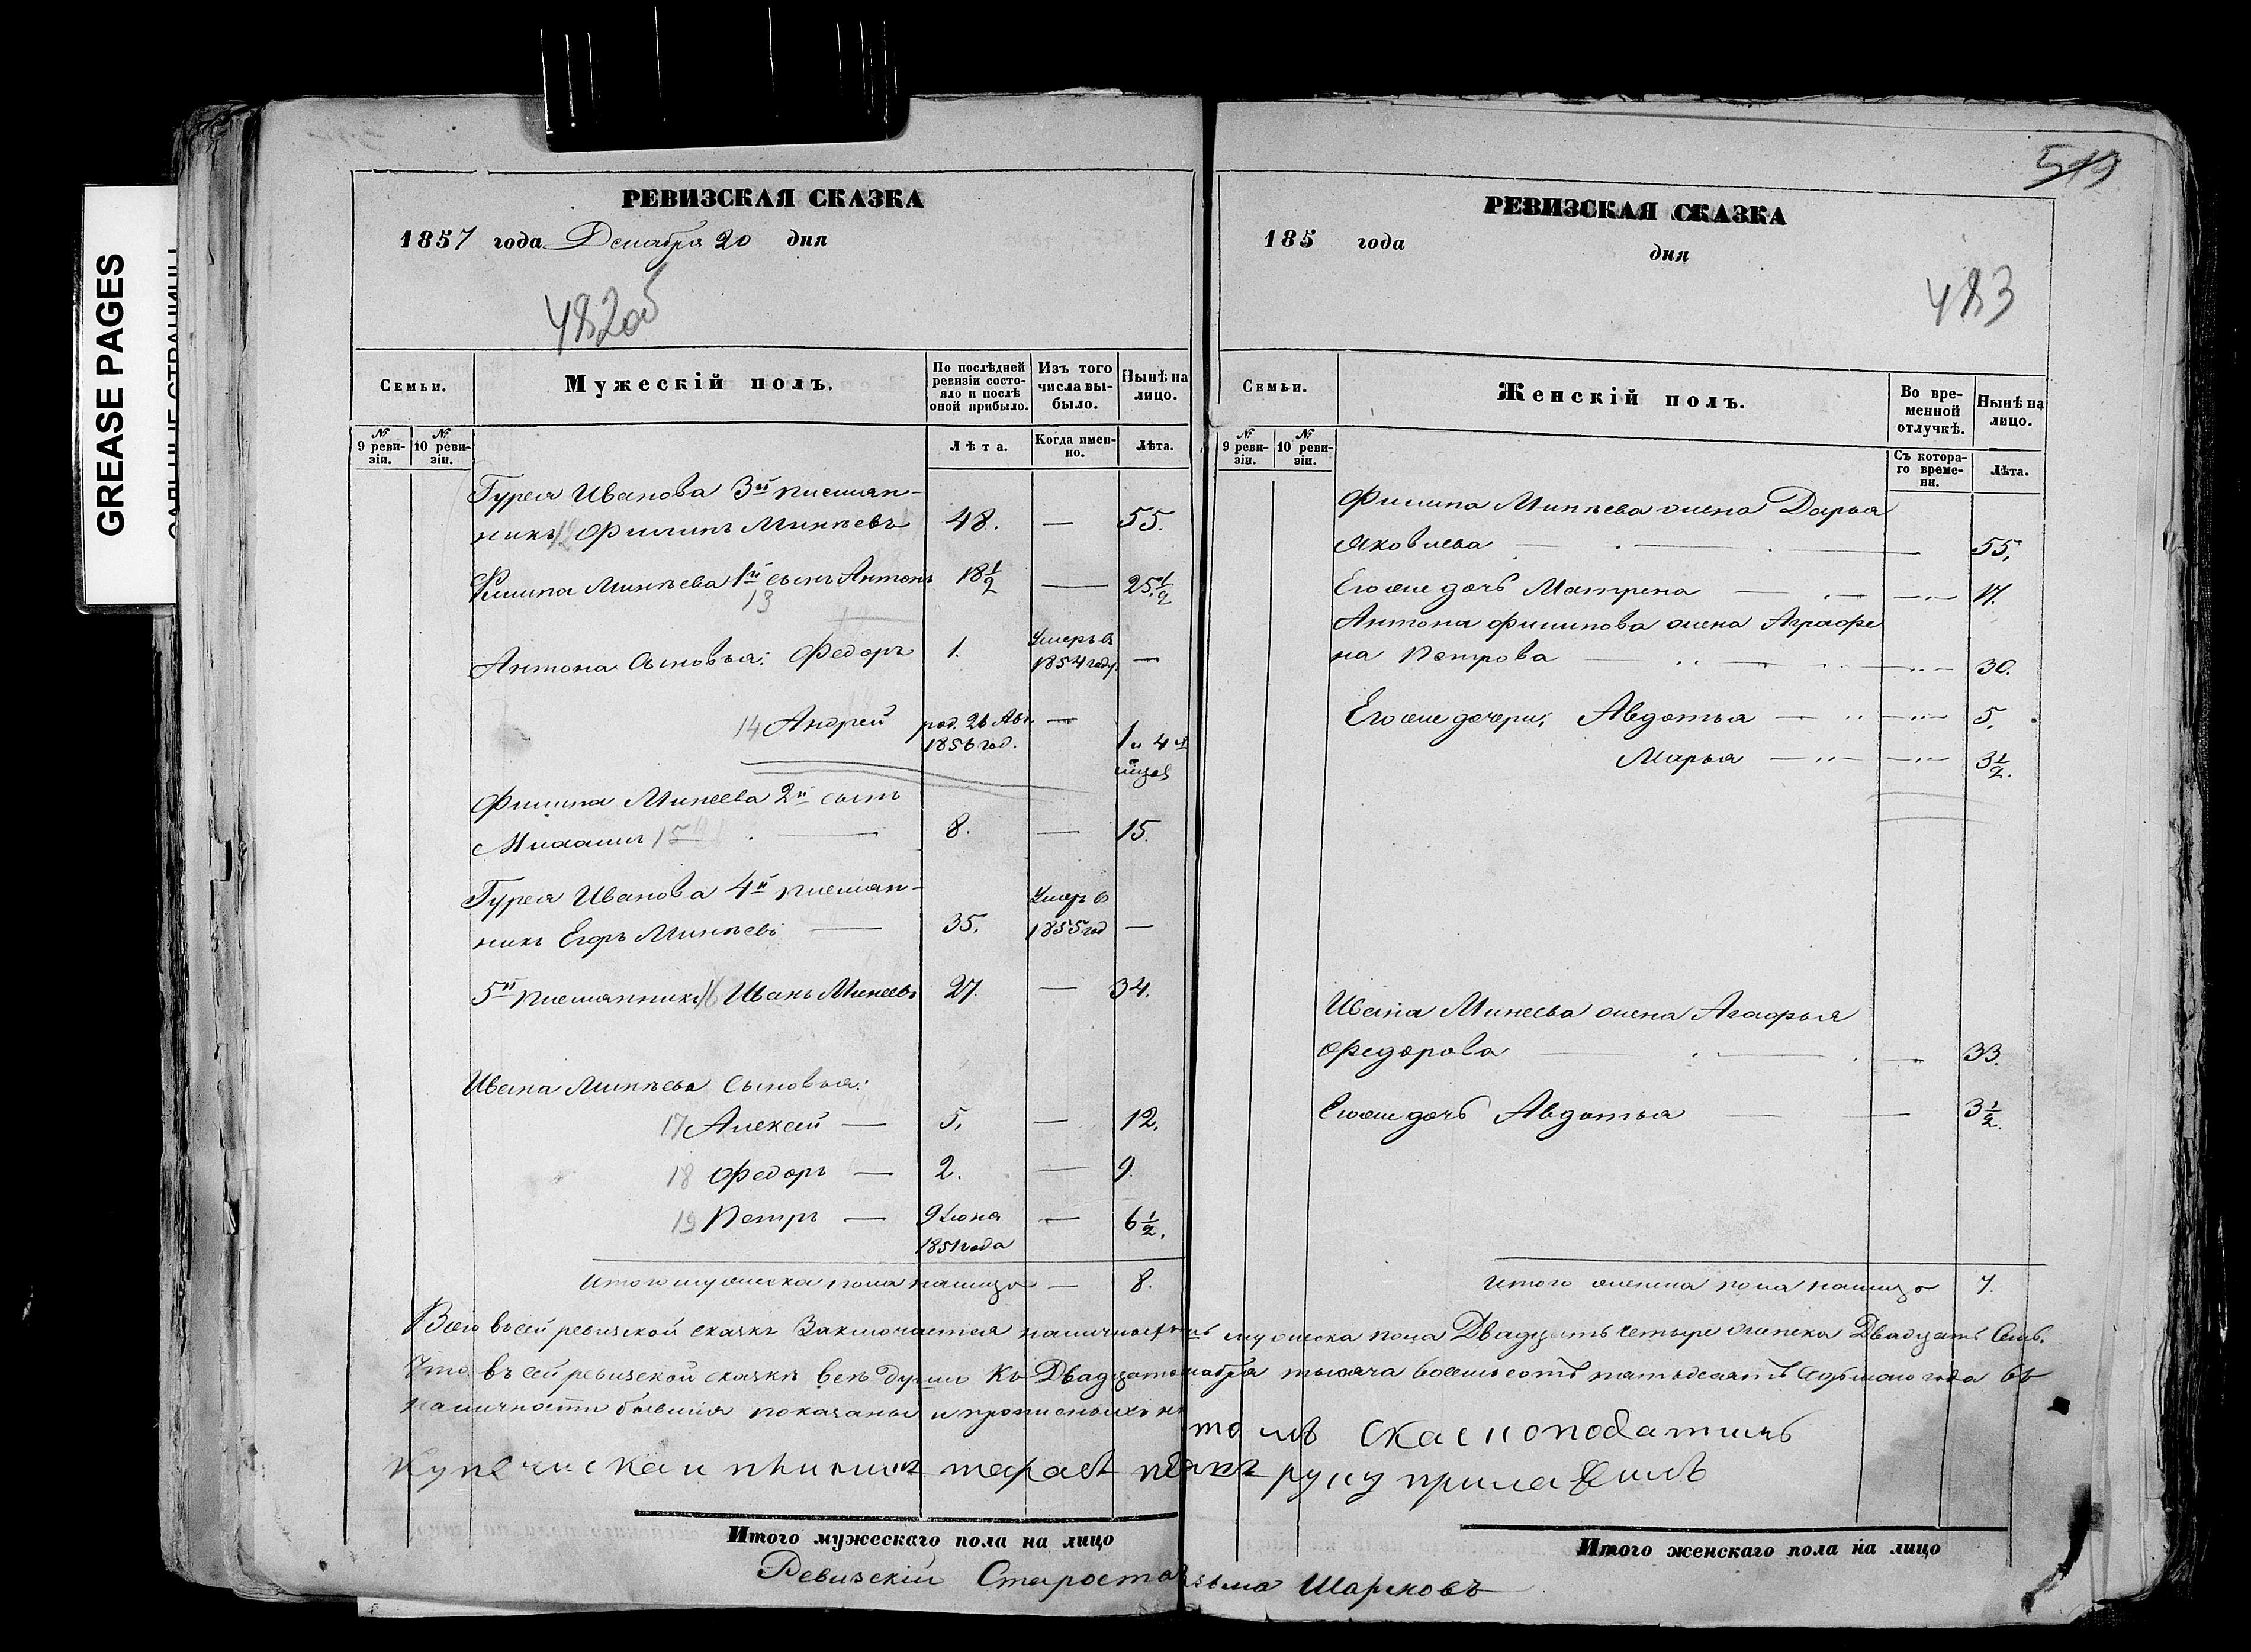 GREASE PAGES
РЕВИЗСКАЯ СКАЗКА
1857 года Декабря 20 дня
482об
Семьи.
Мужескій полъ.
По послѣдней ревизіи состояло и послѣ оной прибыло.
Изъ того числа выбыло.
Нынѣ на лицо.
№ 9 ревизіи.
№ 10 ревизіи.
Лѣта.
Когда именно.
Лѣта.
Гурея Иванова 3й племян-
никъ 12 Филипъ Минѣевъ 48. — 55.
Филипа Минѣева 1й сынъ Антонъ 18½ — 25½
13
Антона сыновья: Федоръ 1. Умеръ в 1854 году. —
14 Андрей род. 26 Авг. 1856 год. — 1 и 4 м
Филипа Минеева 2й сынъ
15 — 8. — 15.
Гурея Иванова 4й племян-
никъ Егоръ Минѣевъ — 35. Умеръ в 1855 год —
5й племянникъ 16 Иванъ Минеевъ 27. — 34.
Ивана Минѣева сыновья:
17 Алексей — 5. — 12.
18 Федоръ — 2. — 9.
19 Петръ — 9 Июня 1851 года — 6½.
Итого мужеска пола налицо — 8.
РЕВИЗСКАЯ СКАЗКА
185 года
дня
483
Семьи.
Женскій полъ.
Во временной отлучкѣ.
Нынѣ на лицо.
№ 9 ревизіи.
№ 10 ревизіи.
Съ котораго времени.
Лѣта.
Филипа Минѣева жена Дарья
Яковлева — 55.
Его же дочь Матрена — 17.
Антона Филипова жена Аграфе
на Петрова — 30.
Его же дочери: Авдотья — 5.
Марья — 3½.
Ивана Минеева жена Агафья
Федорова — 33.
Его же дочь Авдотья — 3½.
Итого женска пола налицо 7.
Всего въ сей ревизской сказкѣ заключается наличныхъ мужеска пола Двадцать четыре женска Двадцать семь.
Что въ сей ревизской сказкѣ все души къ Двадцатому тысяча восемьсотъ пятьдесятъ седьмого года въ
наличности бывшія показаны и прописныхъ
томъ скаскоподатиль
тарасъ руку прилажилъ
Итого мужескаго пола на лицо
Итого женскаго пола на лицо
Ревизскій Староста Шарековъ